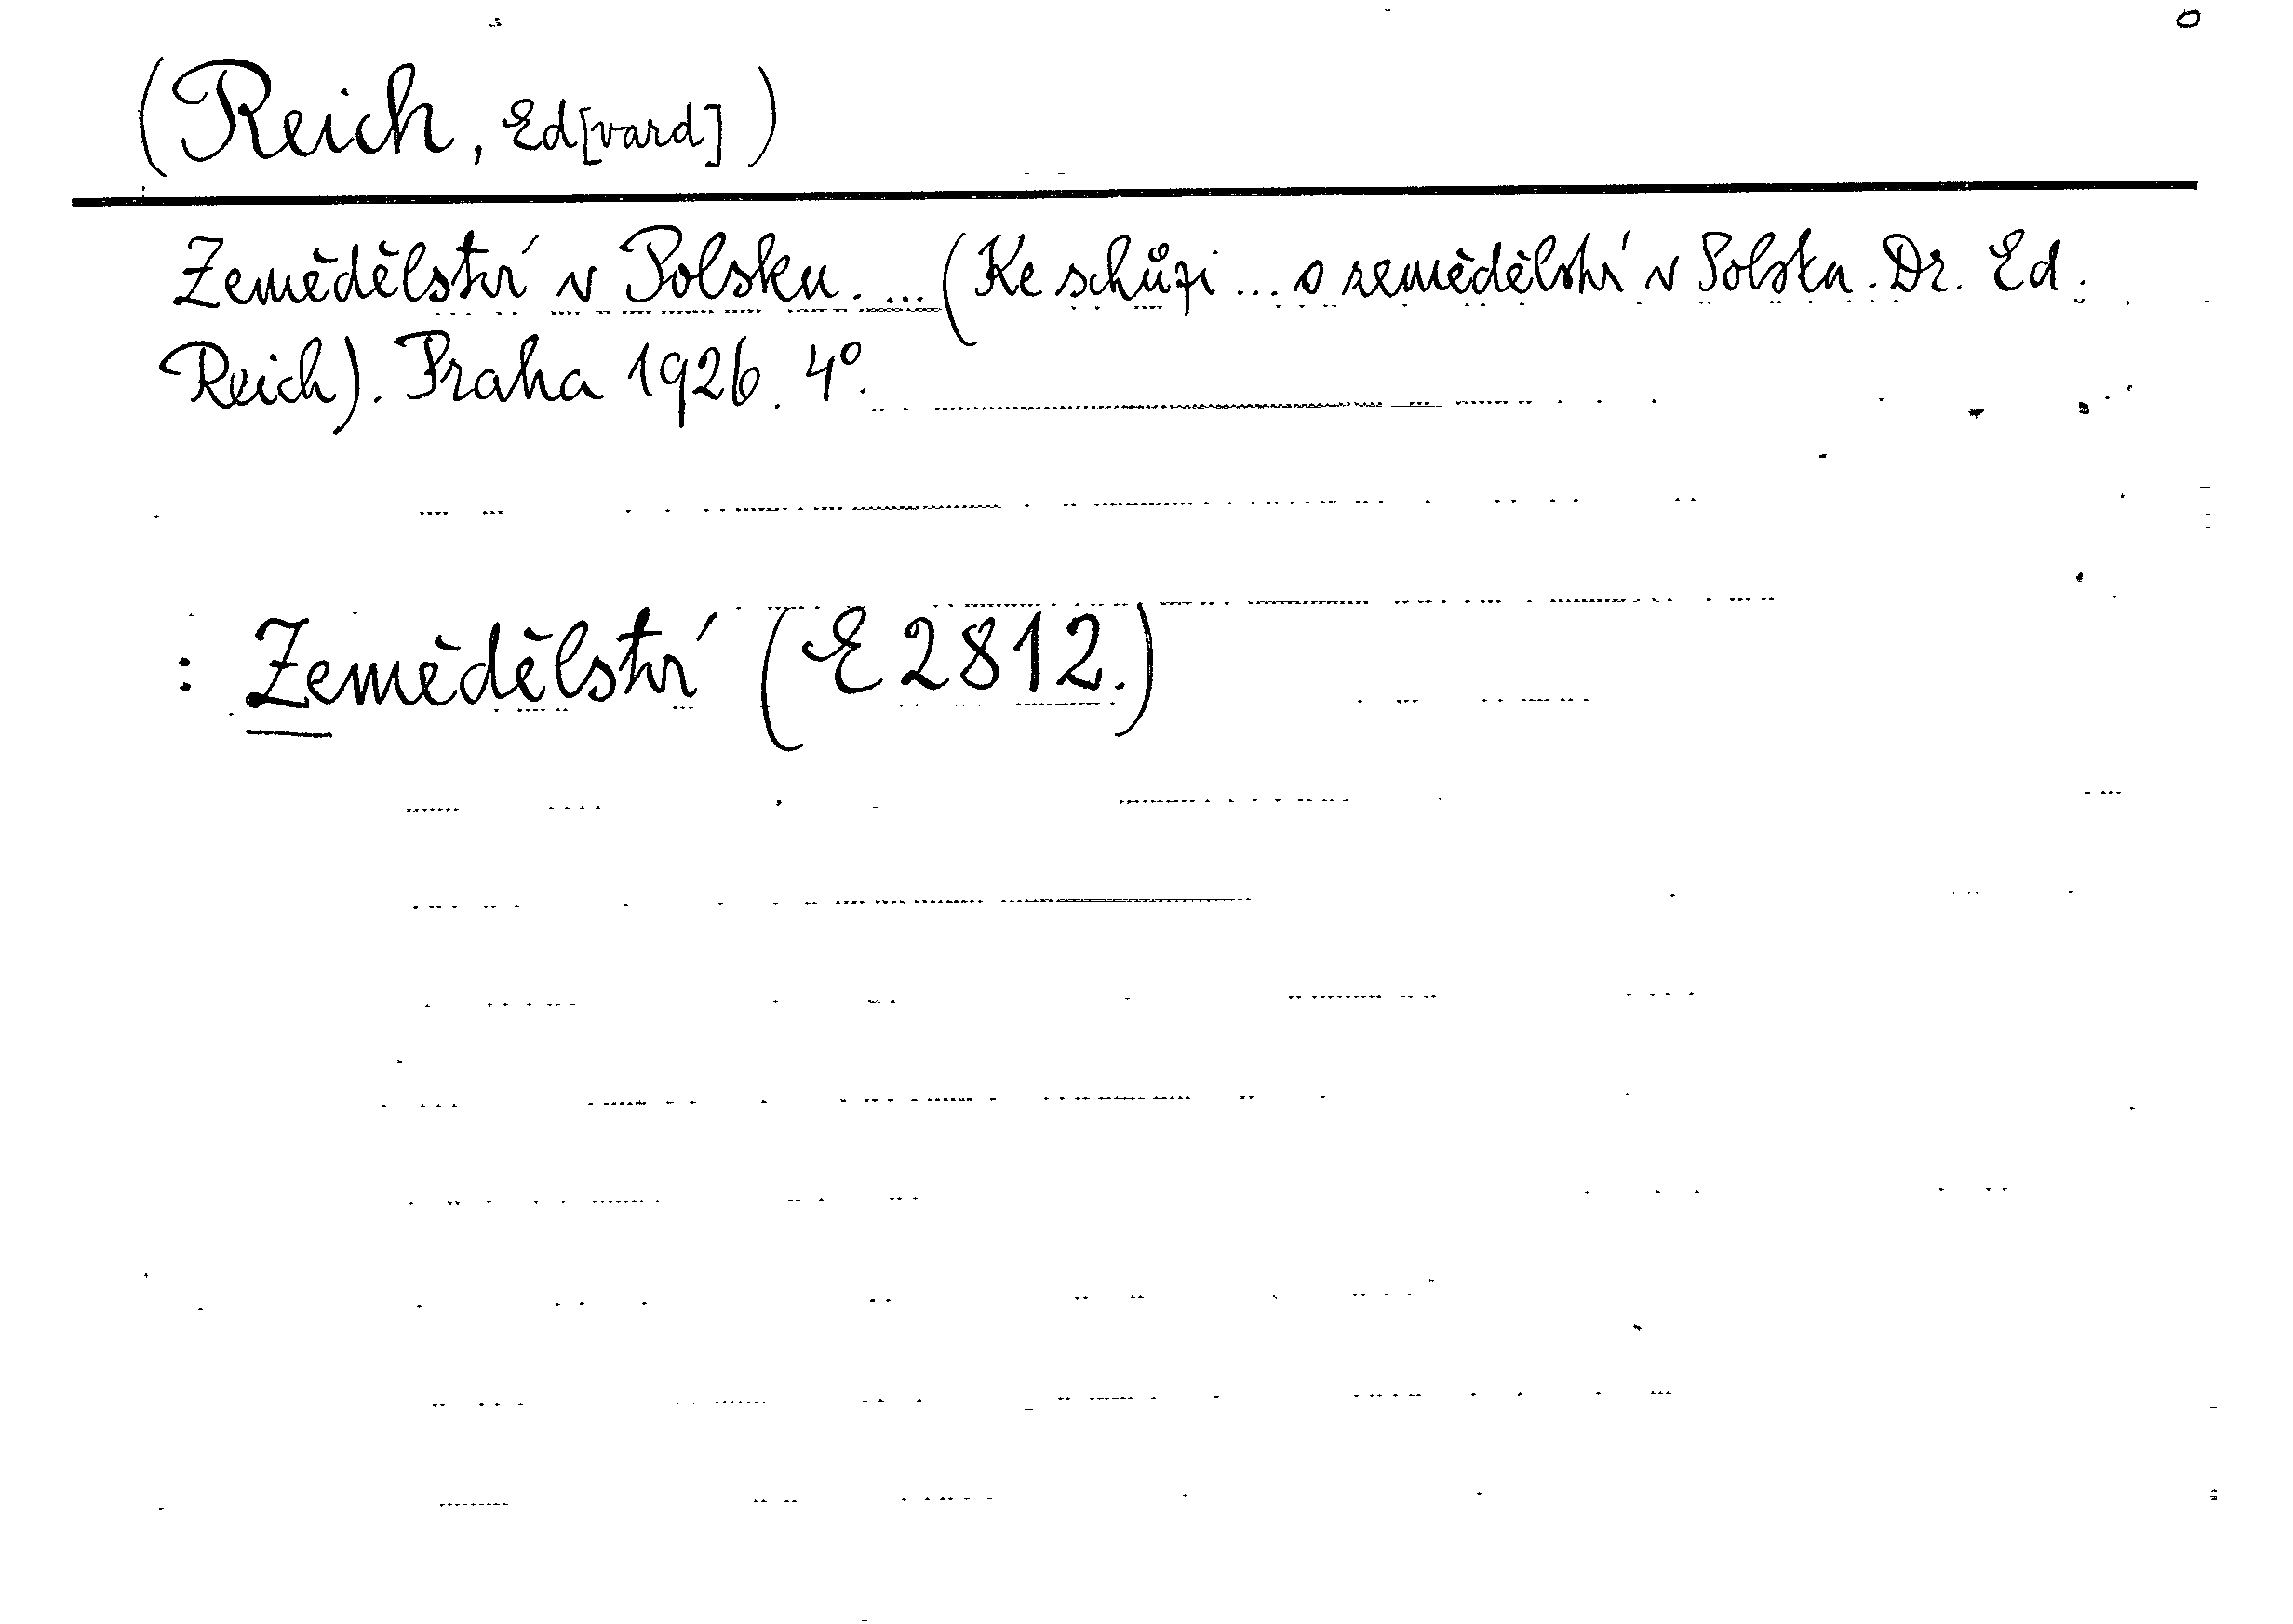 (Reich, Ed[vard])
Zemědělství v Polsku. ... (Ke schůzi ... o zemědělství v Polska. Dr. Ed.
Reich). Praha 1926. 4°.
: Zemědělství (E 2812.)